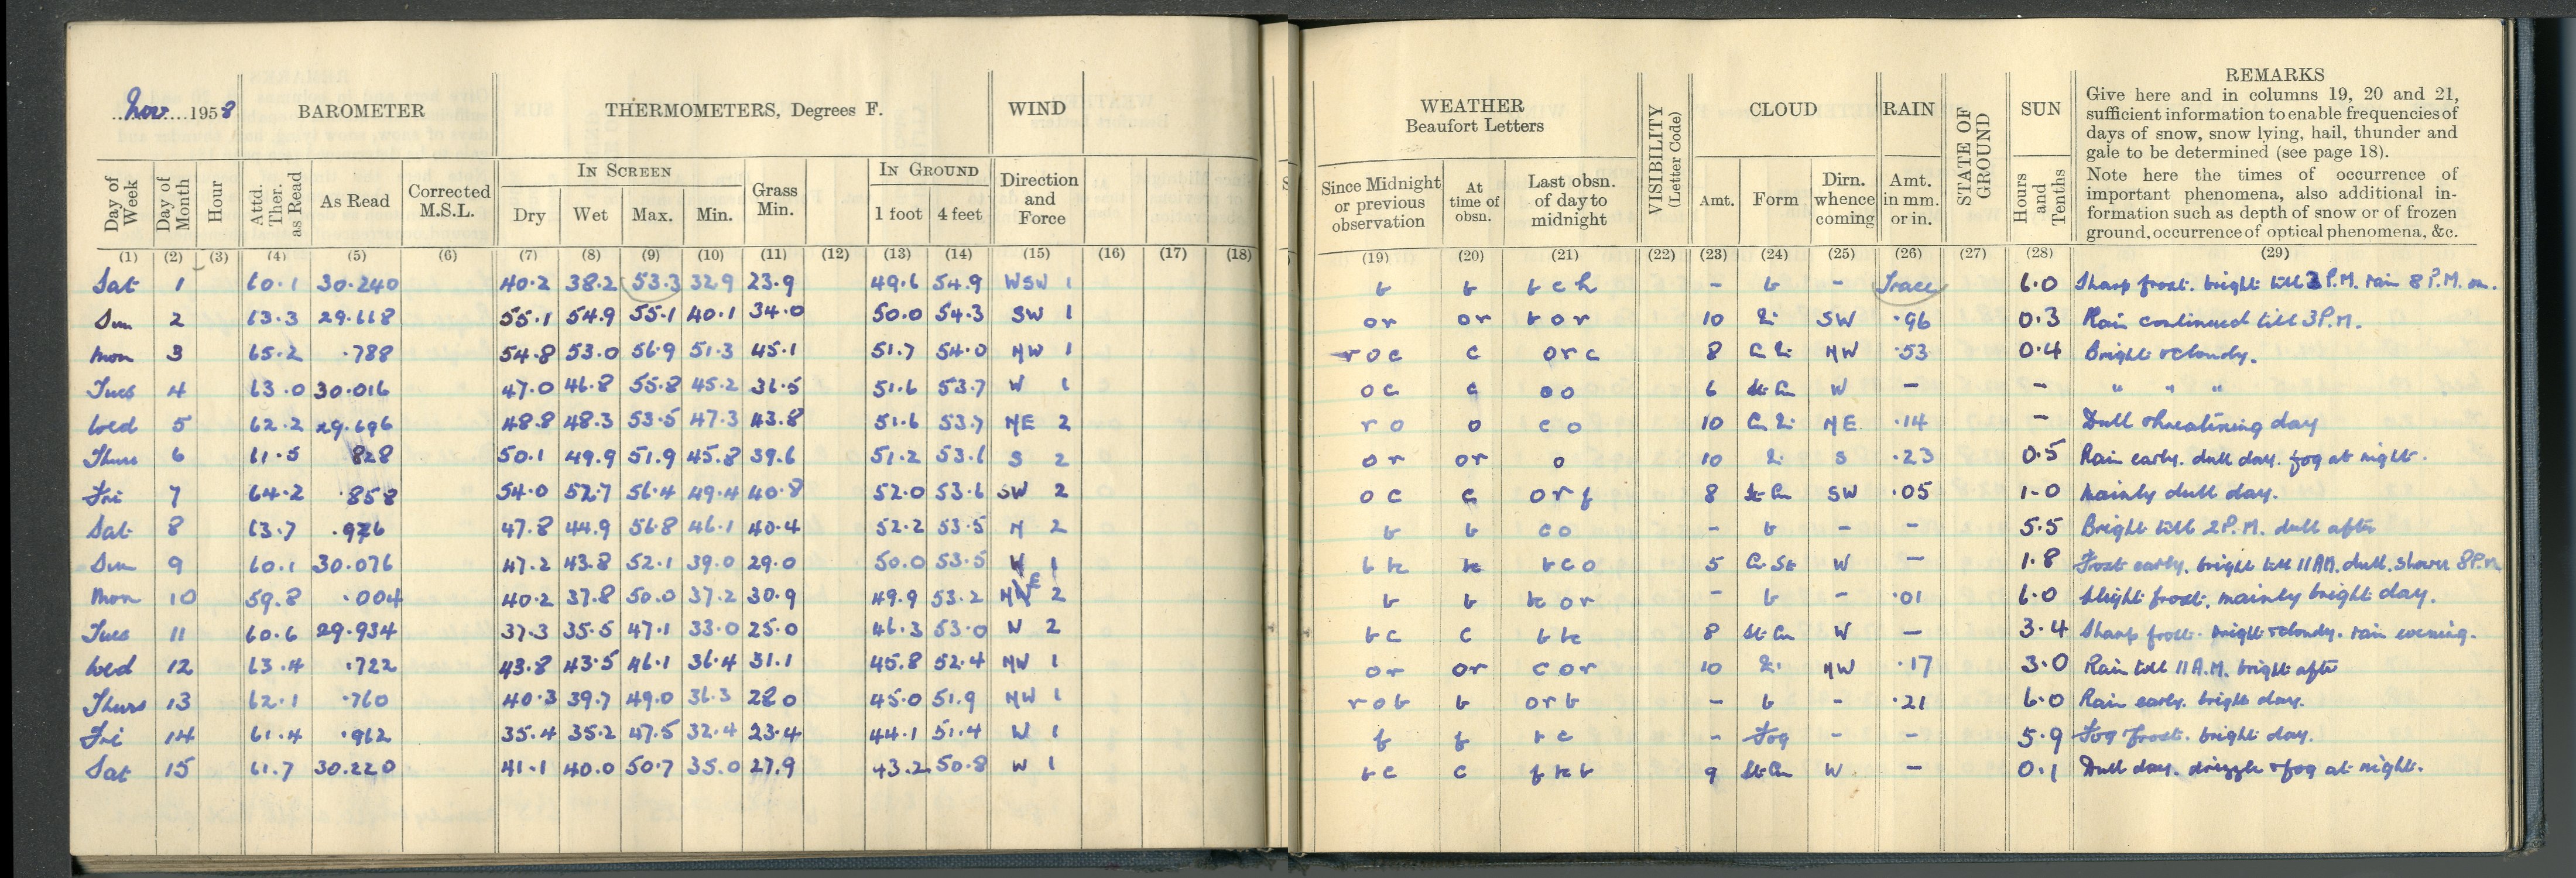 Nov 1958 BAROMETER THERMOMETERS, Degrees F. WIND
Day of Week Day of Month Hour Attd. Ther. as Read As Read Corrected M.S.L. IN SCREEN Dry Wet Max. Min. Grass Min. IN GROUND 1 foot 4 feet Direction and Force
(1) (2) (3) (4) (5) (6) (7) (8) (9) (10) (11) (12) (13) (14) (15) (16) (17) (18)
Sat 1 60.1 30.240 40.2 38.2 53.3 32.9 23.9 49.6 54.9 WSW 1
Sun 2 63.3 29.618 55.1 54.9 55.1 40.1 34.0 50.0 54.3 SW 1
Mon 3 65.2 .788 54.8 53.0 56.9 51.3 45.1 51.7 54.0 NW 1
Tues 4 63.0 30.016 47.0 46.8 55.8 45.2 36.5 51.6 53.7 W 1
Wed 5 62.2 29.696 48.8 48.3 53.5 47.3 43.8 51.6 53.7 NE 2
Thurs 6 61.5 828 50.1 49.9 51.9 45.8 39.6 51.2 53.6 S 2
Fri 7 64.2 .858 54.0 52.7 56.4 49.4 40.8 52.0 53.6 SW 2
Sat 8 63.7 .976 47.8 44.9 56.8 46.1 40.4 52.2 53.5 N 2
Sun 9 60.1 30.076 47.2 43.8 52.1 39.0 29.0 50.0 53.5 W 1
Mon 10 59.8 .004 40.2 37.8 50.0 37.2 30.9 49.9 53.2 NE 2
Tues 11 60.6 29.934 37.3 35.5 47.1 33.0 25.0 46.3 53.0 N 2
Wed 12 63.4 .722 43.8 43.5 46.1 36.4 31.1 45.8 52.4 NW 1
Thurs 13 62.1 .760 40.3 39.7 49.0 36.3 28.0 45.0 51.9 NW 1
Fri 14 61.4 .962 35.4 35.2 47.5 32.4 23.4 44.1 51.4 W 1
Sat 15 61.7 30.220 41.1 40.0 50.7 35.0 27.9 43.2 50.8 W 1
WEATHER Beaufort Letters VISIBILITY (Letter Code) CLOUD RAIN STATE OF GROUND SUN REMARKS
Give here and in columns 19, 20 and 21,
sufficient information to enable frequencies of
days of snow, snow lying, hail, thunder and
gale to be determined (see page 18).
Note here the times of occurrence of
important phenomena, also additional in-
formation such as depth of snow or of frozen
ground, occurrence of optical phenomena, &c.
Since Midnight or previous observation At time of obsn. Last obsn. of day to midnight Amt. Form Dirn. whence coming Amt. in mm. or in. Hours and Tenths
(19) (20) (21) (22) (23) (24) (25) (26) (27) (28) (29)
b b b c h - b - Trace 6.0 Sharp frost. bright till 3 P.M. rain 8 P.M. on.
or or b o r 10 SW .96 0.3 Rain continued till 3 P.M.
r o c c o r c 8 NW .53 0.4 Bright & cloudy.
o c c o o 6 St Cu W - - " " "
r o o c o 10 NE .14 - Dull threatening day
or or o 10 S .23 0.5 Rain early. dull day. fog at night.
o c c o r f 8 St Cu SW .05 1.0 Mainly dull day.
b b c o - b - - 5.5 Bright till 2 P.M. dull after
b c o 5 Cu St W - 1.8 Frost early. bright till 11 AM. dull. shower 8 P.M
b b - b - .01 6.0 Slight frost. mainly bright day.
b c c 8 St Cu W - 3.4 Sharp frost. bright & cloudy. rain evening.
or or c o r 10 NW .17 3.0 Rain till 11 A.M. bright after
r o b b o r b - b - .21 6.0 Rain early. bright day.
f f b c - Fog - - 5.9 Fog frost. bright day.
b c c 9 St Cu W - 0.1 Dull day. drizzle & fog at night.